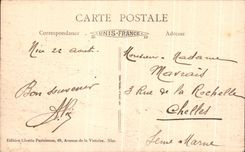 CARTE POSTALE
Correspondance
UNIS-FRANCE
Adresse
Nice 22 août
Bon souvenir
Monsieur Madame
3 Rue de la Rochelle
Chelles
Seine Marne
Edition Librairie Parisienne, 69, Avenue de la Victoire, Nice